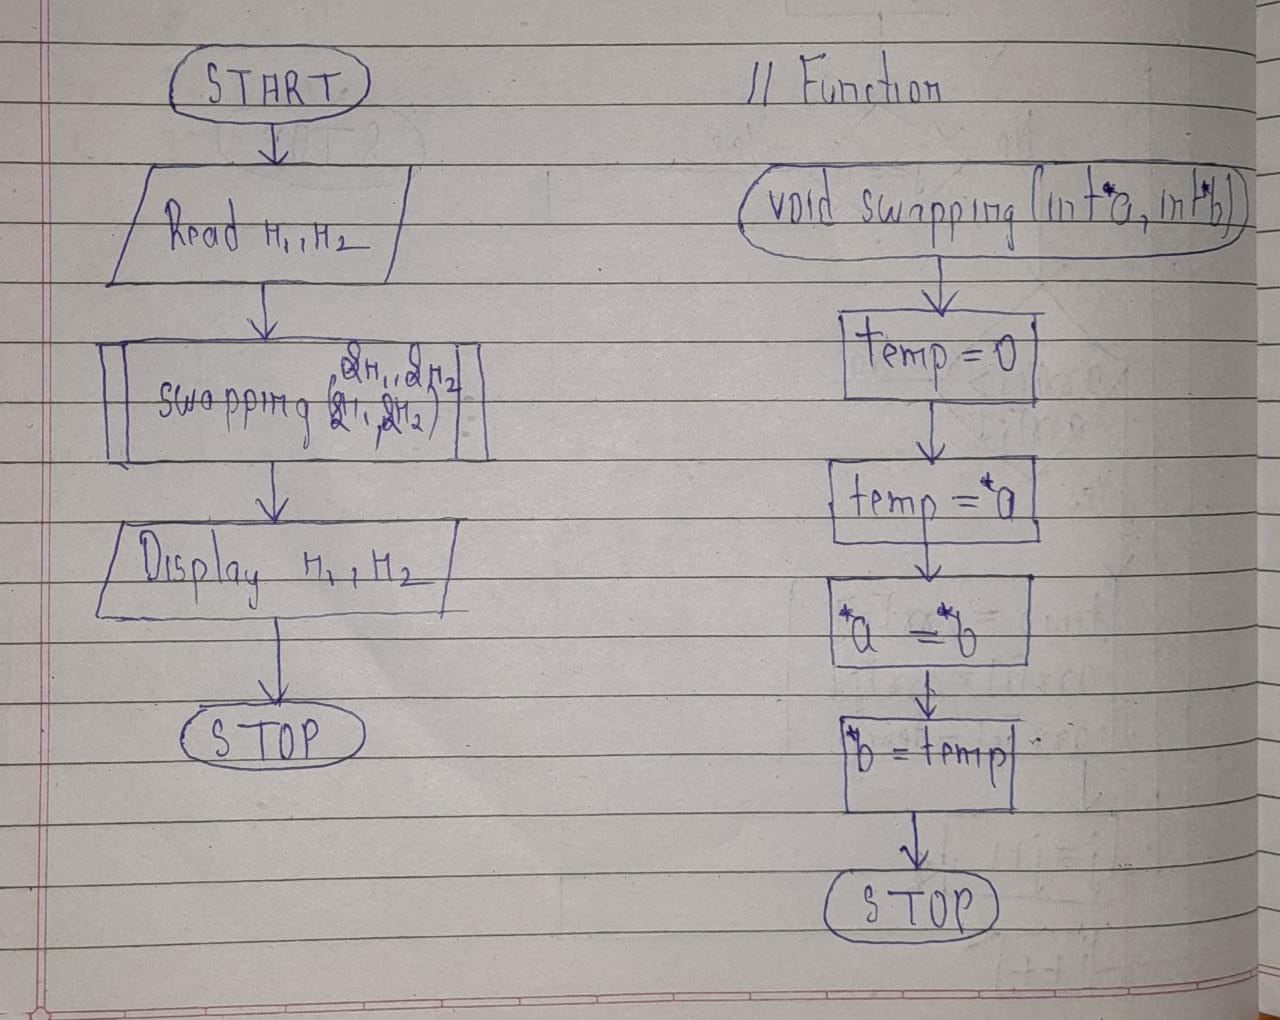 START
Read n1, n2
swapping (&n1, &n2)
&n1, &n2
Display n1, n2
STOP
// Function
void swapping (int *a, int *b)
temp = 0
temp = *a
*a = *b
*b = temp
STOP